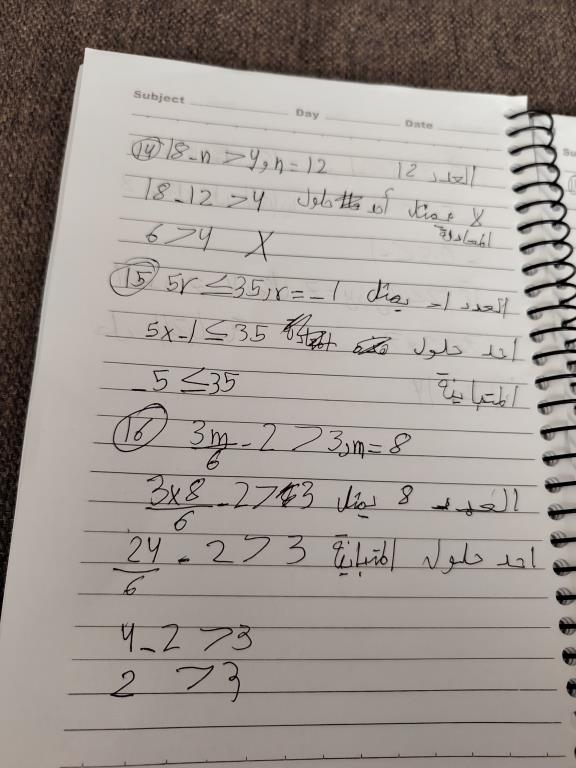 Subject Day Date
(14) 18-n > 4, n = 12 العدد 12
18-12 > 4 لا يمثل أحد حلول
المتباينة
6 > 4 X
(15) 5r ≤ 35, r = -1 العدد 1- يمثل
5x-1 ≤ 35 احد حلول
-5 ≤ 35 المتباينة
(16) 3m/6 - 2 > 3, m = 8
3x8/6 - 2 > 3 العدد 8 يمثل
24/6 - 2 > 3 احد حلول المتباينة
4-2 > 3
2 > 3